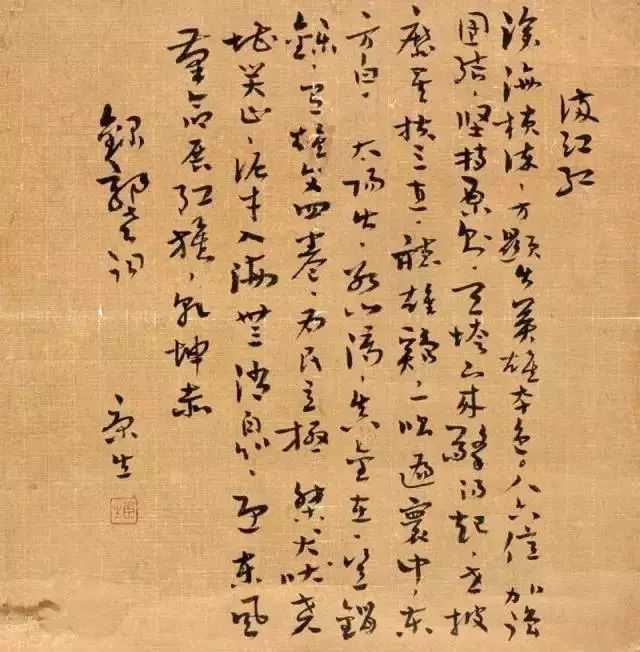 满江红
滄海横流，方顯出英雄本色。人六亿，加强
团结，坚持原则，天垮下来擎得起，世披
靡矣扶之直，聽雄鷄，一唱遍寰中，东
方白。太陽出，冰山滴，真金在，岂銷
鑠，有雄文四卷，为民立極 桀犬吠尧
堪笑止，泥牛入海无消息，迎东風
革命展红旗，乾坤赤
錄郭老词
康生